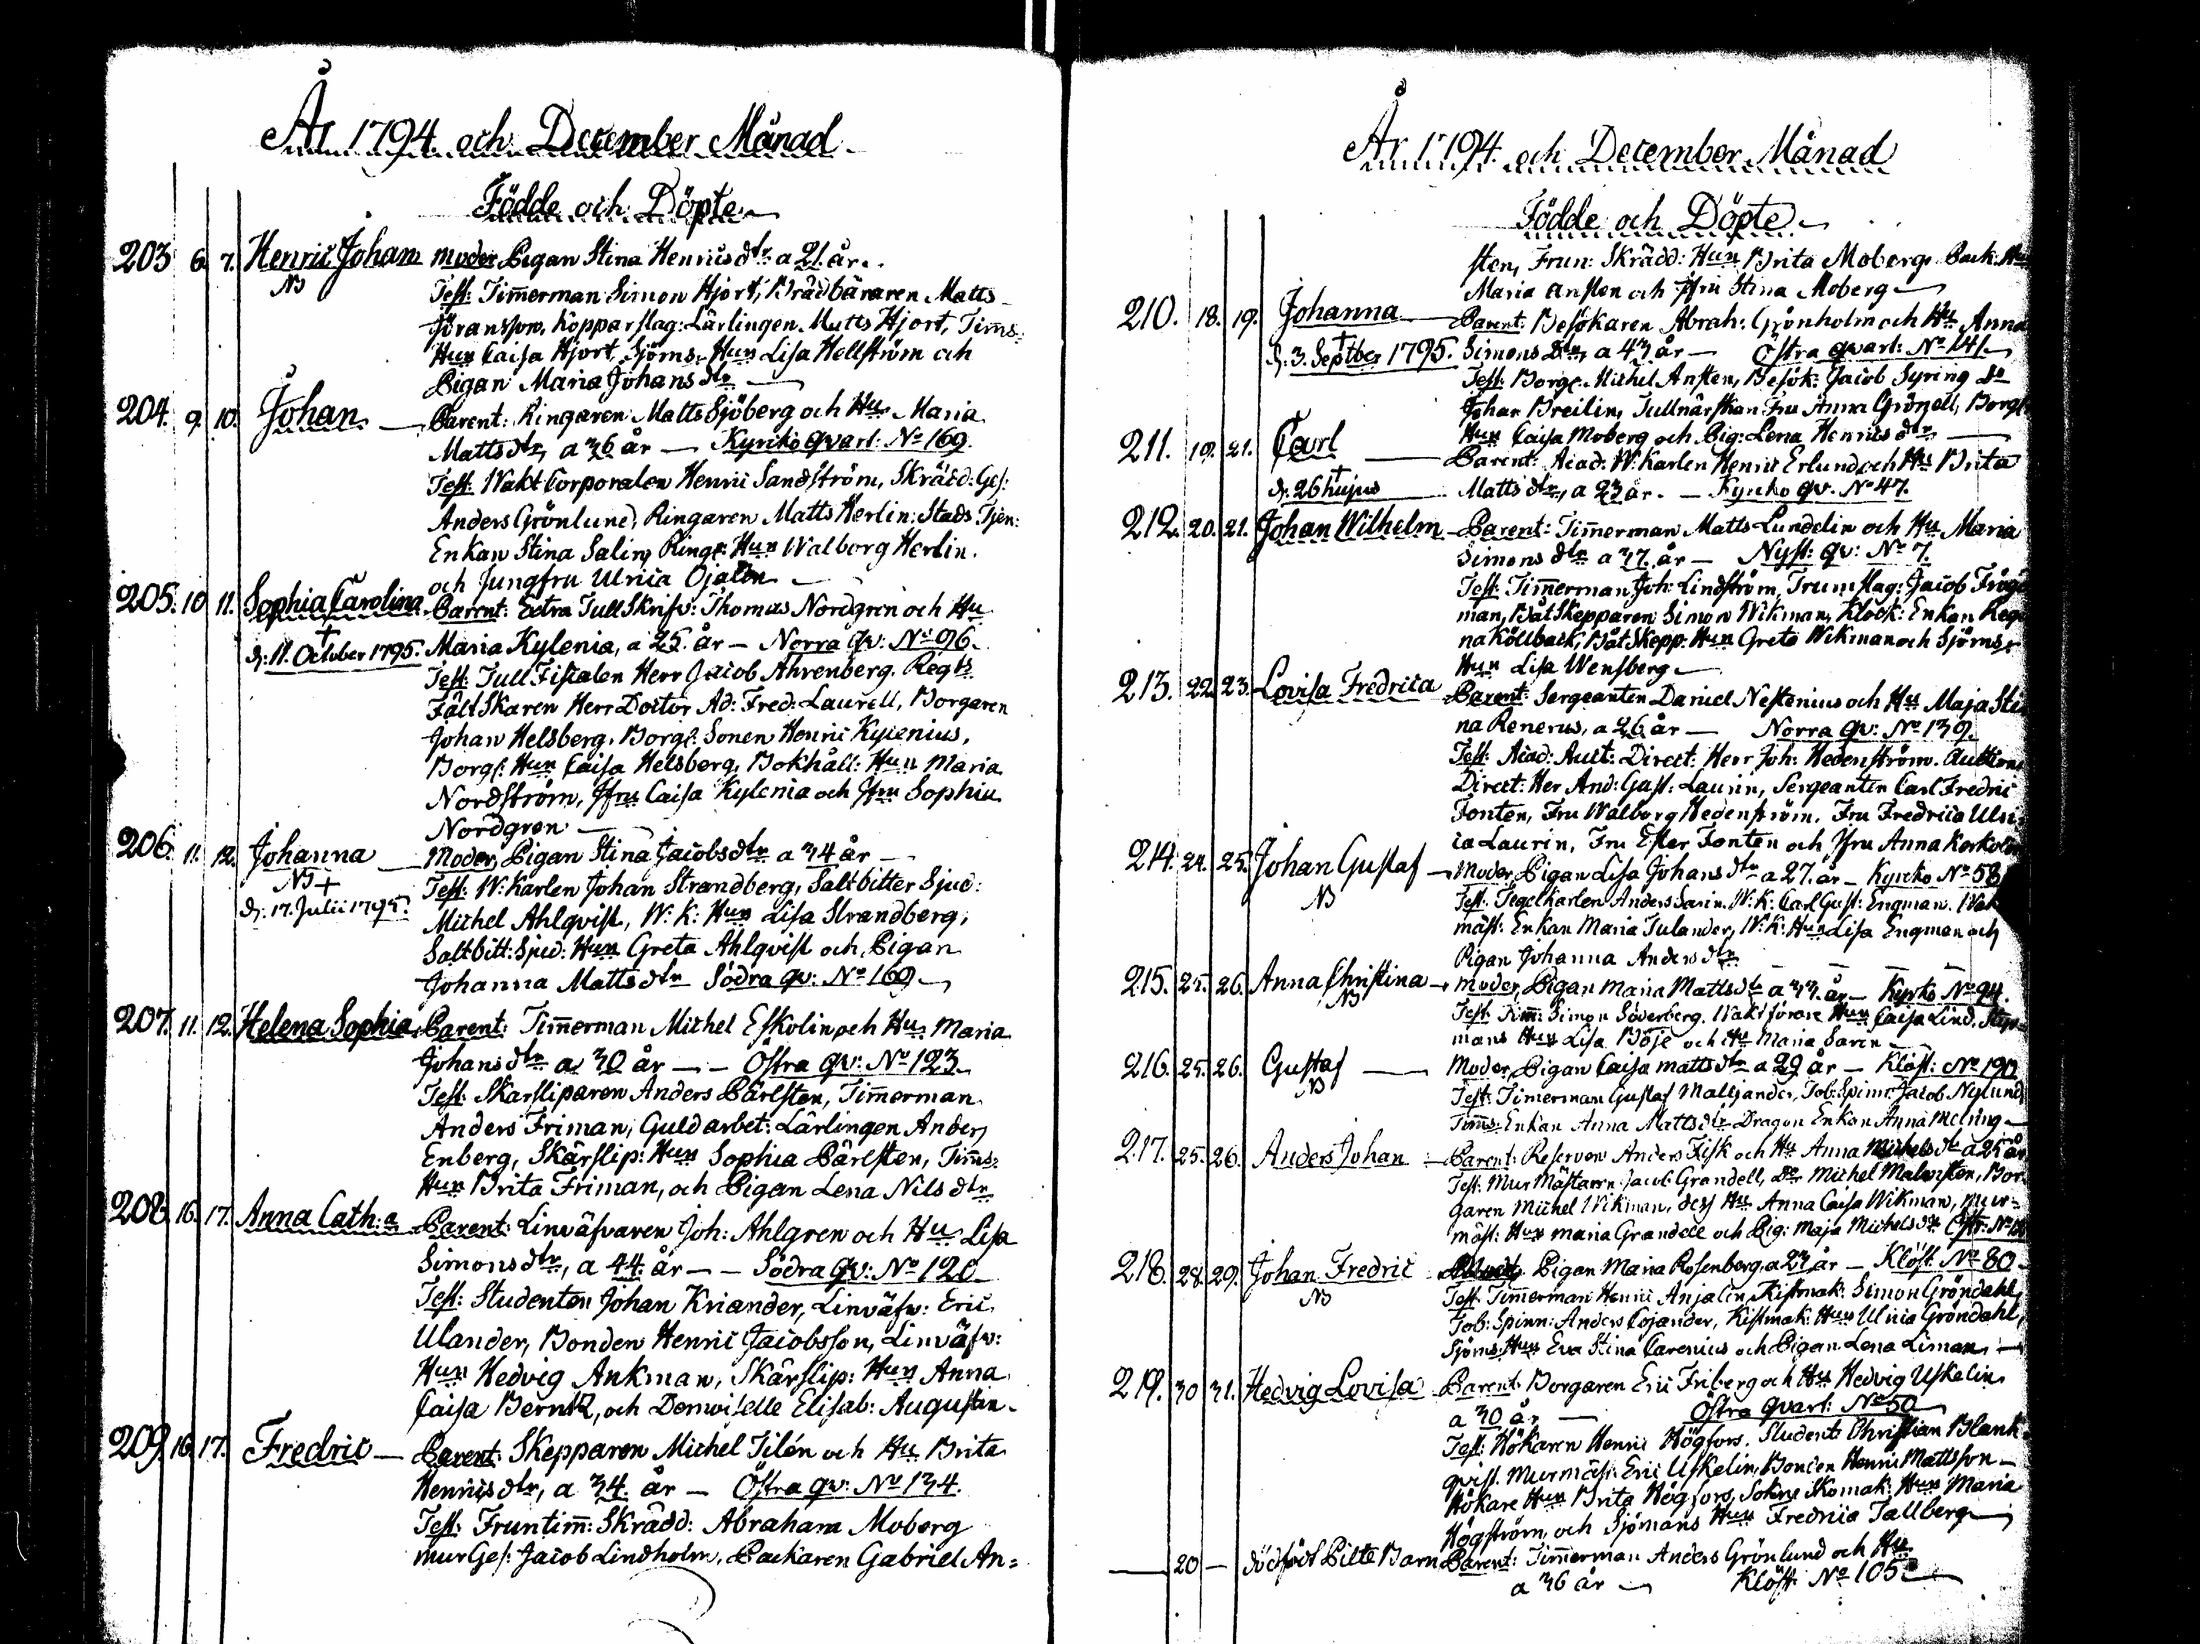 År 1794. och December Månad
Födde och Döpte
203 6. 7. Henric Johan moder Pigan Stina Henricsdtr a 21. år.
NB Test: Tim̄erman Simon Hjort, Brädbäraren Matts
Göransson, Kopparslag: Lärlingen Matts Hjort, Tim̄s:
Hun Caisa Hjort, Sjöms: Hun Lisa Hellström och
Pigan Maria Johansdtr
204. 9. 10. Johan Parent: Ringaren Matts Sjöberg och Hu Maria
Mattsdtr, a 36 år — Kyrko qvart: No 169.
Test: Wakt Corporalen Henric Sandström, Skrädd: Ges:
Anders Grönlund, Ringaren Matts Herlin: Stads Tjen:
Enkan Stina Salin, Ringr: Hun Walborg Herlin.
och Jungfru Ulrica Ojalen
205. 10 11. Sophia Carolina Parent: Extra Tull Skrifv: Thomas Nordgren och Hu
+ d: 11. October 1795. Maria Kylenia, a 25. år — Norra qv: No 96.
Test: Tull Fiscalen Herr Jacob Ahrenberg. Regts
Fält Skaren Herr Doctor Ad: Fred: Laurell, Borgaren
Johan Helsberg, Borgr: Sonen Henric Kylenius,
Borgr: Hun Caisa Helsberg, Bokhåll: Hun Maria
Nordström, Jfru Caisa Kylenia och Jfru Sophia
Nordgren
206. 11. 12. Johanna Moder, Pigan Stina Jacobsdtr a 34 år —
NB + Test: W: Karlen Johan Strandberg, Saltbitter Sjud:
d: 17. Julii 1795. Michel Ahlqvist, W: K: Hun Lisa Strandberg,
Saltbitt: Sjud: Hun Greta Ahlqvist och Pigan
Johanna Mattsdtr Södra qv: No 169
207. 11. 12. Helena Sophia Parent: Tim̄erman Michel Eskolin och Hu Maria
Johansdtr a 30 år — Östra qv: No 123
Test: Skärsliparen Anders Pärlsten, Tim̄erman
Anders Friman, Guldarbet: Lärlingen Anders
Enberg, Skärslip: Hun Sophia Pärlsten, Tim̄s:
Hun Brita Friman, och Pigan Lena Nilsdtr
208. 16. 17. Anna Cath:a Parent: Linväfvaren Joh: Ahlgren och Hu Lisa
Simonsdtr, a 44. år — Södra qv: No 120
Test: Studenten Johan Kriander, Linväfv: Eric
Ulander, Bonden Henric Jacobsson, Linväfv:
Hun Hedvig Ankman, Skärslip: Hun Anna
Caisa Berntz, och Demoiselle Elisab: Augustin
209. 16. 17. Fredric — Parent: Skepparen Michel Tilén och Hu Brita
Henricsdtr, a 34. år — Östra qv: No 134.
Test: Fruntim̄: Skrädd: Abraham Moberg
murGes: Jacob Lindholm, Packaren Gabriel An=
År 1794. och December Månad
Födde och Döpte
sten, Frun: Skrädd: Hun Brita Moberg. Pack: Hu
Maria Ansten och Jfru Stina Moberg
210. 18. 19. Johanna Parent: Besökaren Abrah: Grönholm och Hu Anna
+ d: 3. Septber 1795. Simonsdtr, a 43 år — Östra qvart: No 141
Test: Borgr: Michel Ansten, Besök: Jacob Syring Do
Johan Breilin, Tullnärskan Fru Anna Grönell, Borgr:
Hun Caisa Moberg och Pig: Lena Henricsdtr
211. 19. 21. Carl Parent: Acad: W: Karlen Henric Erlund och Hu Brita
+ d: 26 hujus Mattsdtr, a 23 år. — Kyrko qv. No 47.
212. 20. 21. Johan Wilhelm Parent: Tim̄erman Matts Lundelin och Hu Maria
Simonsdtr a 37. år — Nyst: qv: No 7.
Test: Tim̄erman Joh: Lindström, Trumslag: Jacob
man, Båt Skepparen Simon Wikman, Klock: Enkan Regi
na Kollback, Båt Skepp: Hun Greta Wikman och Sjöms:
Hun Lisa Wensberg
213. 22. 23. Lovisa Fredrica Parent: Sergeanten Daniel Nestenius och Hu Maja Sti
na Renerus, a 26 år — Norra qv: No 139.
Test: Acad: Auct: Direct: Herr Joh: Hedenström. Auctions
Direct: Her And: Gust: Laurin, Sergeanten Carl Fredric
Fonten, Fru Walborg Hedenström, Fru Fredrica Ulri
ca Laurin, Fru Ester Fonten och Jfru Anna
214. 24. 25. Johan Gustaf — Moder, Pigan Lisa Johansdtr a 27. år — Kyrko No 58
NB Test: Tegelkarlen Anders Sarin. W: K: Carl Gust: Engman. Wakt
mäst: Enkan Maria Tulander, W: K: Hun Lisa Engman och
Pigan Johanna Andersdtr
215. 25. 26. Anna Christina — moder, Pigan Maria Mattsdtr a 33. år — Kyrko No 94.
NB Test: Tim̄: Simon Söderberg. Waktförare Hun Caisa Lind,
mans Hun Lisa Böje och Hu Maria Sarin
216. 25. 26. Gustaf Moder, Pigan Caisa Mattsdtr a 29 år — Klöst: No 190
NB Test: Timerman Gustaf Malleander, Tob: Spinr: Jacob Nylund
Tim̄s: Enkan Anna Mattsdtr Dragon Enkan Anna
217. 25. 26. Anders Johan — Parent: Reserven Anders Fisk och Hu Anna Michelsdtr a 25 år
Test: Mur Mästaren Jacob Grandell, Do Michel Malmsten, Bor
garen Michel Wikman, dess Hu Anna Caisa Wikman, mur=
mäst: Hun Maria Grandell och Pig: Maja Michelsdtr Östr: No
218. 28. 29. Johan Fredric Moder, Pigan Maria Rosenberg, a 23 år — Klöst: No 80
NB Test: Timmerman Henric Anjalin, Kistmak: Simon Gröndahl,
Tob: Spinn: Anders Cojander, Kistmak: Hun Ulrica Gröndahl,
Sjöms: Hun Eva Stina Carenius och Pigan Lena Liman
219. 30 31. Hedvig Lovisa Parent: Borgaren Eric Friberg och Hu Hedvig Uskelin
a 30 år — Östra qvart: No 50
Test: Hökaren Henric Högfors. Student: Christian Blank
qvist. Murmäst: Eric Uskelin, Bonden Henric Mattsson
Hökare Hun Brita Högfors, Skomak: Hun Maria
Högström, och Sjömans Hun Fredrica Tallberg
— 20 — dödfödt Pilte Barn Parent: Tim̄erman Anders Grönlund och Hu
a 36 år — Klöst: No 105